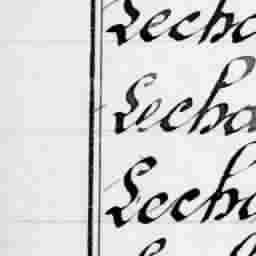 Lecha
Lecha
Lecha